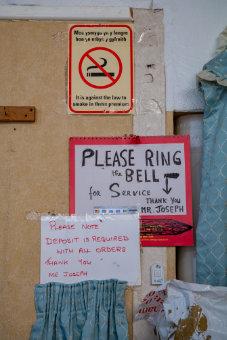 Mae ysmygu yn y fangre
hon yn erbyn y gyfraith
It is against the law to
smoke in these premises
PLEASE RING
the BELL
for SERVICE
THANK YOU
MR. JOSEPH
PLEASE NOTE
DEPOSIT IS REQUIRED
WITH ALL ORDERS
THANK YOU
MR JOSEPH